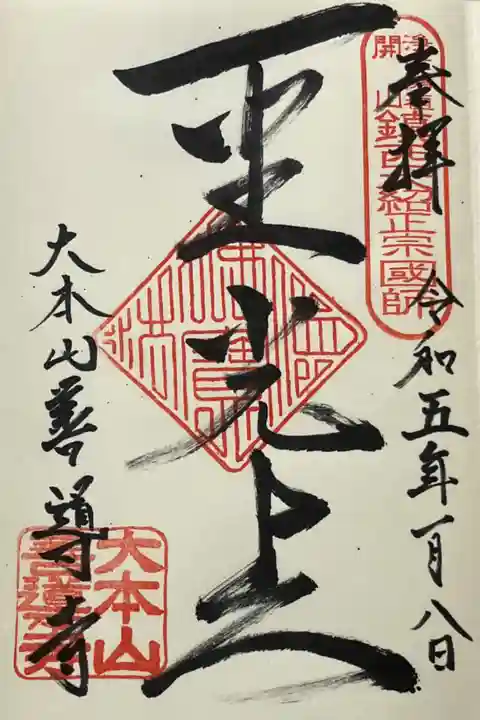 奉拝
令和五年一月八日
開山鎮西
大紹正宗國師
聖光上人
大本山善導寺
大本山
善導寺